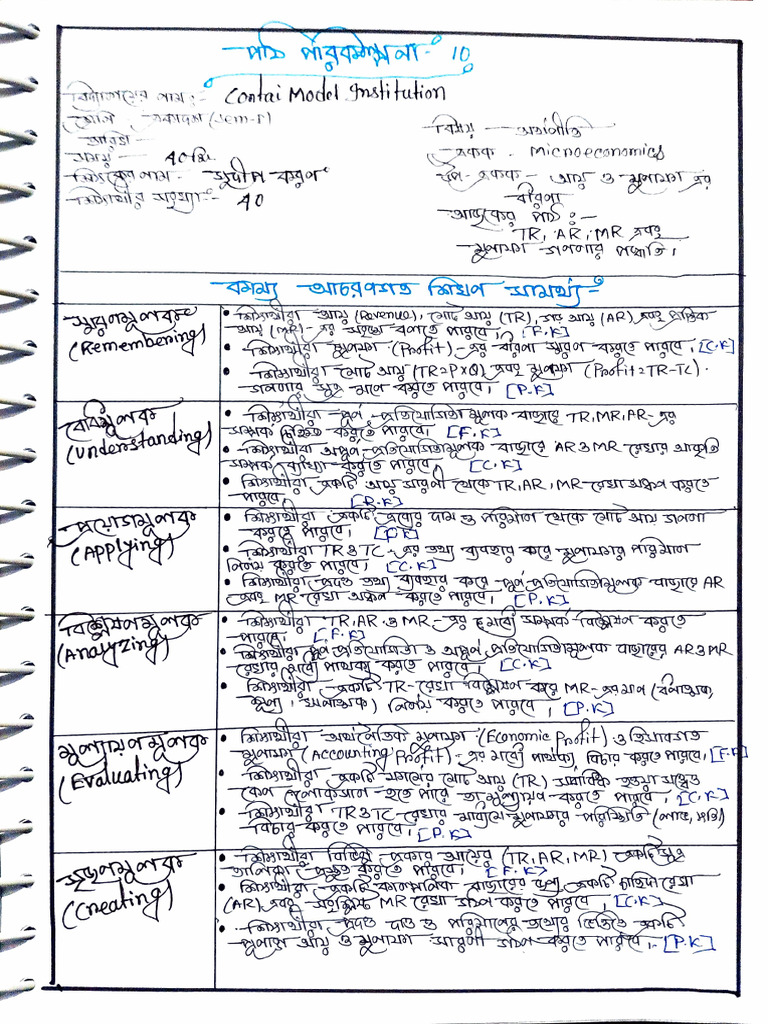 পাঠ পরিকল্পনা - 10
বিদ্যালয়ের নাম :- Contai Model Institution
শ্রেণি - একাদশ (Sem-I)
বিষয় - অর্থনীতি
সময় - 40 মি:
একক - Microeconomics
শিক্ষকের নাম - সুদীপ করণ
উপ-একক - আয় ও মুনাফা এর ধারণা
শিক্ষার্থীর সংখ্যা - 40
আজকের পাঠ :-
TR, AR, MR এবং
মুনাফা গণনার পদ্ধতি।
আচরণগত শিখন সামর্থ্য :-
স্মরণমূলক
(Remembering)
• শিক্ষার্থীরা আয় (Revenue), মোট আয় (TR), গড় আয় (AR) এবং প্রান্তিক
আয় (MR)-এর সংজ্ঞা বলতে পারবে। [F.K]
• শিক্ষার্থীরা মুনাফা (Profit)-এর ধারণা স্মরণ করতে পারবে। [C.K]
• শিক্ষার্থীরা মোট আয় (TR=P×Q) এবং মুনাফা (Profit=TR-TC)
গণনার সূত্র মনে করতে পারবে। [P.K]
বোধমূলক
(Understanding)
• শিক্ষার্থীরা পূর্ণ প্রতিযোগিতা মূলক বাজারে TR, MR, AR-এর
সম্পর্ক চিহ্নিত করতে পারবে। [F.K]
• শিক্ষার্থীরা অপূর্ণ প্রতিযোগিতামূলক বাজারে AR ও MR রেখার আকৃতি
সম্পর্ক ব্যাখ্যা করতে পারবে। [C.K]
• শিক্ষার্থীরা একটি আয় সারণী থেকে TR, AR, MR রেখা অঙ্কন করতে
পারবে। [P.K]
প্রয়োগমূলক
(Applying)
• শিক্ষার্থীরা একটি দ্রব্যের দাম ও পরিমাণ থেকে মোট আয় গণনা
করতে পারবে। [F.K]
• শিক্ষার্থীরা TR ও TC-এর তথ্য ব্যবহার করে মুনাফার পরিমাণ
নির্ণয় করতে পারবে। [C.K]
• শিক্ষার্থীরা প্রদত্ত তথ্য ব্যবহার করে পূর্ণ প্রতিযোগিতামূলক বাজারে AR
এবং MR রেখা অঙ্কন করতে পারবে। [P.K]
বিশ্লেষণমূলক
(Analyzing)
• শিক্ষার্থীরা TR, AR ও MR-এর মধ্যে সম্পর্ক বিশ্লেষণ করতে
পারবে। [F.K]
• শিক্ষার্থীরা পূর্ণ প্রতিযোগিতা ও অপূর্ণ প্রতিযোগিতামূলক বাজারের AR ও MR
রেখার মধ্যে পার্থক্য করতে পারবে। [C.K]
• শিক্ষার্থীরা একটি TR-রেখা বিশ্লেষণ করে MR-এর মান (ধনাত্মক,
শূন্য, ঋণাত্মক) নির্ণয় করতে পারবে। [P.K]
মূল্যায়ণমূলক
(Evaluating)
• শিক্ষার্থীরা অর্থনৈতিক মুনাফা (Economic Profit) ও হিসাবগত
মুনাফা (Accounting Profit)-এর মধ্যে পার্থক্য বিচার করতে পারবে। [F.K]
• শিক্ষার্থীরা একটি ফার্মের মোট আয় (TR) সর্বাধিক হওয়া সত্ত্বেও
কেন লোকসান হতে পারে তা মূল্যায়ন করতে পারবে। [C.K]
• শিক্ষার্থীরা TR ও TC রেখার মাধ্যমে মুনাফার পরিস্থিতি (লাভ, ক্ষতি)
বিচার করতে পারবে। [P.K]
সৃজনমূলক
(Creating)
• শিক্ষার্থীরা বিভিন্ন প্রকার আয়ের (TR, AR, MR) একটি সূত্র
তালিকা প্রস্তুত করতে পারবে। [F.K]
• শিক্ষার্থীরা একটি কাল্পনিক বাজারের জন্য একটি চাহিদা রেখা
(AR) এবং সংশ্লিষ্ট MR রেখা গঠন করতে পারবে। [C.K]
• শিক্ষার্থীরা প্রদত্ত দাম ও পরিমাণের তথ্যের ভিত্তিতে একটি
পূর্ণাঙ্গ আয় ও মুনাফা সারণী গঠন করতে পারবে। - [P.K]